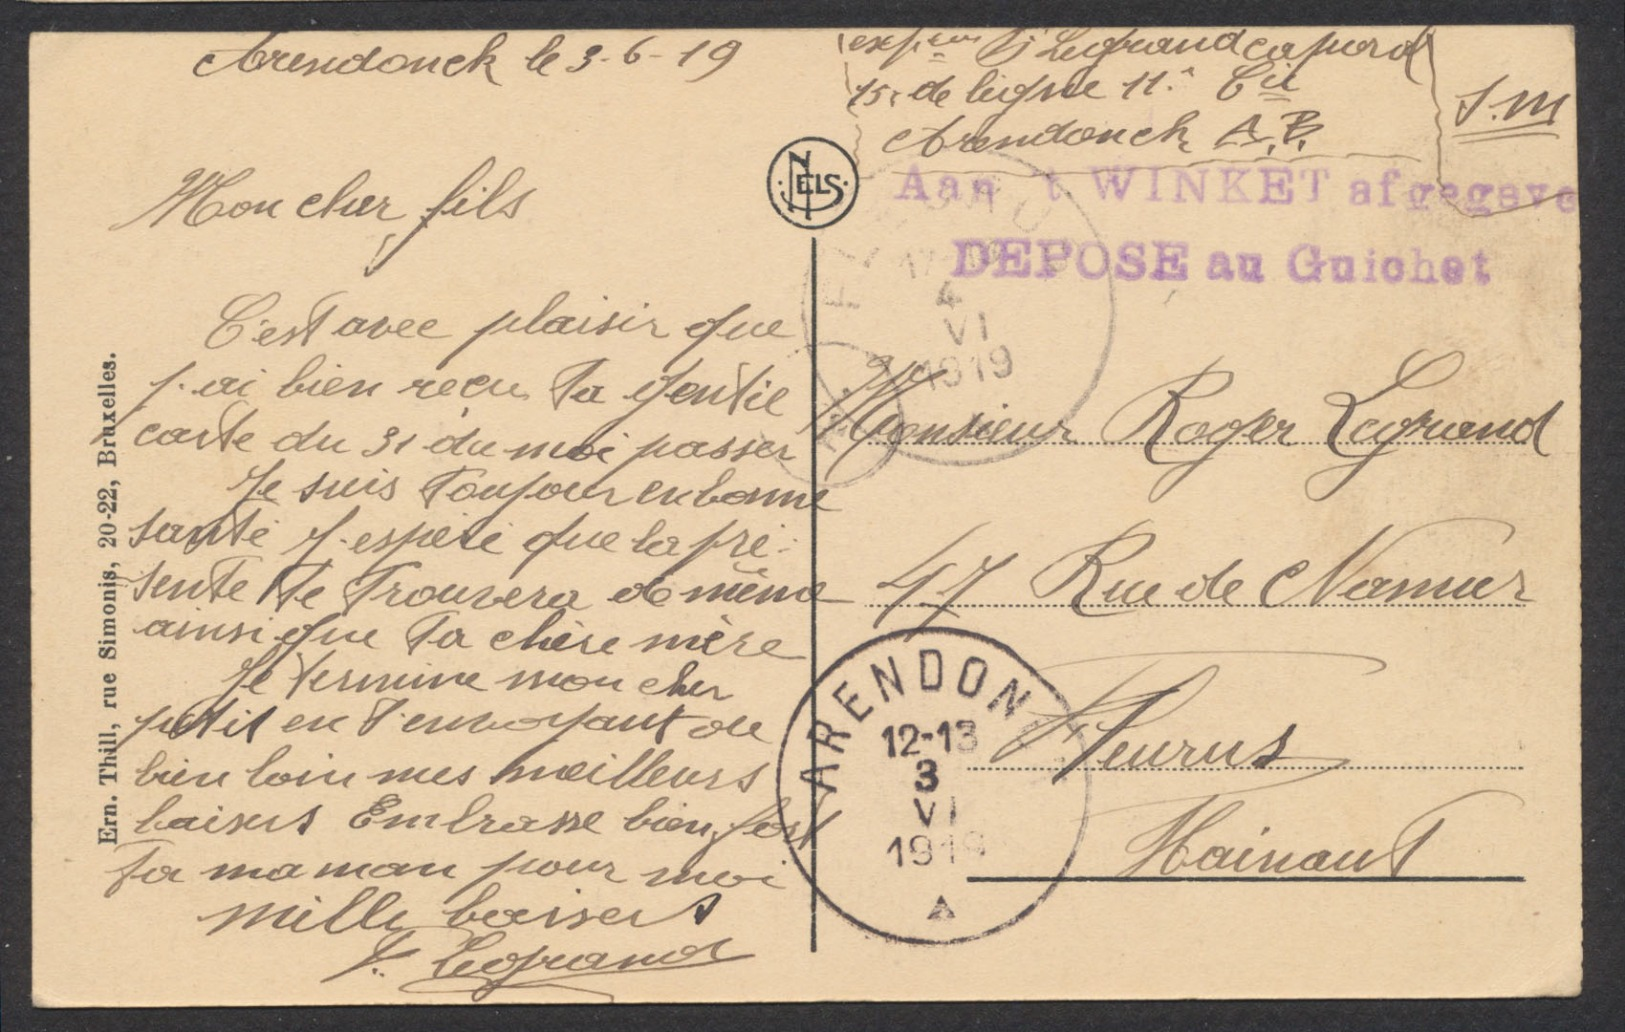 Arendonck le 3-6-19
Mon cher fils
C'est avec plaisir que
j'ai bien recu ta gentie
carte du 31 du moi passer
Je suis toujour en bonne
santé J'espère que la pré-
sente te trouvera de même
ainsi que ta chère mère
Je termine mon cher
petit en t'envoyant de
bien loin mes meilleurs
baisers Embrasse bien fort
ta maman pour moi
mille baisers
J. Legrand
Ern. Thill, rue Simonis, 20-22, Bruxelles.
NELS
J Legrand caporal
15e de ligne 11e Cie
Arendonck A.B.
S.M
Aan t WINKET afgegeve
DEPOSE au Guichet
4
VI
1919
Monsieur Roger Legrand
47 Rue de Namur
Fleurus
Hainaut
ARENDON
12-13
3
VI
1919